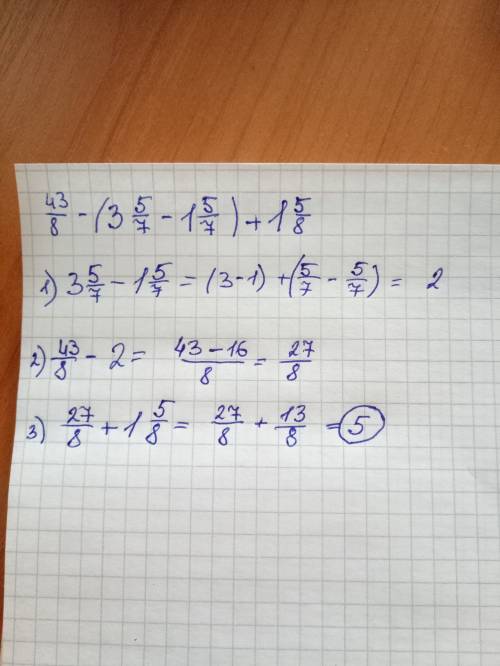 43/8 - (3 5/7 - 1 5/7) + 1 5/8
1) 3 5/7 - 1 5/7 = (3-1) + (5/7 - 5/7) = 2
2) 43/8 - 2 = (43-16)/8 = 27/8
3) 27/8 + 1 5/8 = 27/8 + 13/8 = 5